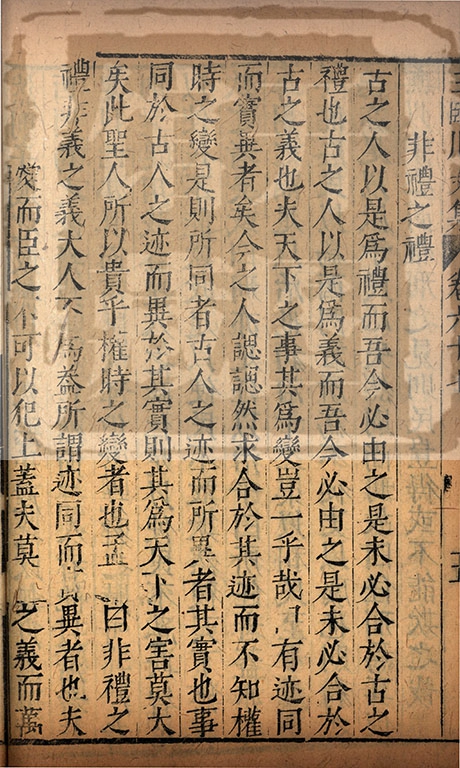 王臨川文集 卷六十七 五
非禮之禮
古之人以是爲禮而吾今必由之是未必合於古之
禮也古之人以是爲義而吾今必由之是未必合於
古之義也夫天下之事其爲變豈一乎哉有迹同
而實異者矣今之人諰諰然求合於其迹而不知權
時之變是則所同者古人之迹而所異者其實也事
同於古人之迹而異於其實則其爲天下之害莫大
矣此聖人所以貴乎權時之變者也孟曰非禮之
禮非義之義大人不爲蓋所謂迹同而其異者也夫
愛而臣之不可以犯上蓋夫莫之義而萬